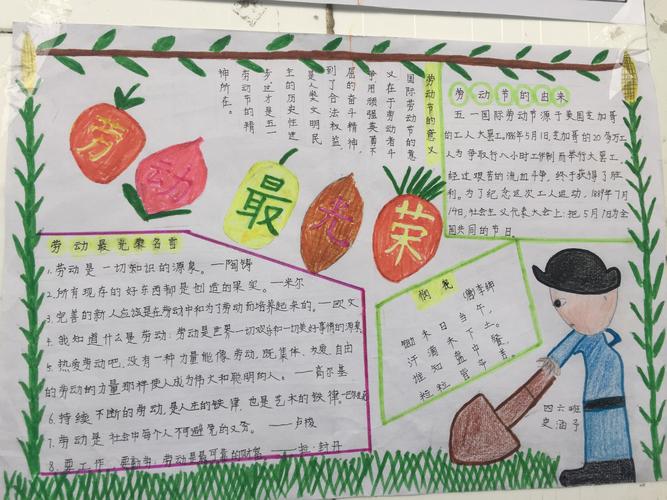 劳动最光荣
劳动节的意义
国际劳动节的意
义在于劳动者斗
争用顽强英勇不
屈的奋斗精神，
到了合法权益，
是人类文明民
主的历史性进
步，这才是五一
劳动节的精
神所在。
劳动节的由来
五一国际劳动节源于美国芝加哥
的工人大罢工。1886年5月1日芝加哥的20多万工
人为争取行八小时工作制而举行大罢工，
经过艰苦的流血斗争，终于获得了胜
利。为了纪念这次工人运动，1889年7月
14日，社会主义代表大会上：把5月1日为全
国共同的节日。
劳动最光荣名言
1.劳动是一切知识的源泉。——陶铸
2.所有现存的好东西都是创造的果实。——米尔
3.完善的新人应该是在劳动中和为了劳动而培养起来的。——欧文
4.我知道什么是劳动：劳动是世界一切欢乐和一切美好事情的源泉
5.热爱劳动吧，没有一种力量能像劳动，既集体、友爱、自由
的劳动的力量那样使人成为伟大和聪明的人。——高尔基
6.持续不断的劳动，是人生的铁律，也是艺术的铁律。
7.劳动是社会中每个人不可避免的义务。——卢梭
8.要工作，要勤劳：劳动是最可靠的财富。
悯农
唐李绅
锄禾日当午，
汗滴禾下土。
谁知盘中餐，
粒粒皆辛苦。
四六班
史涵予